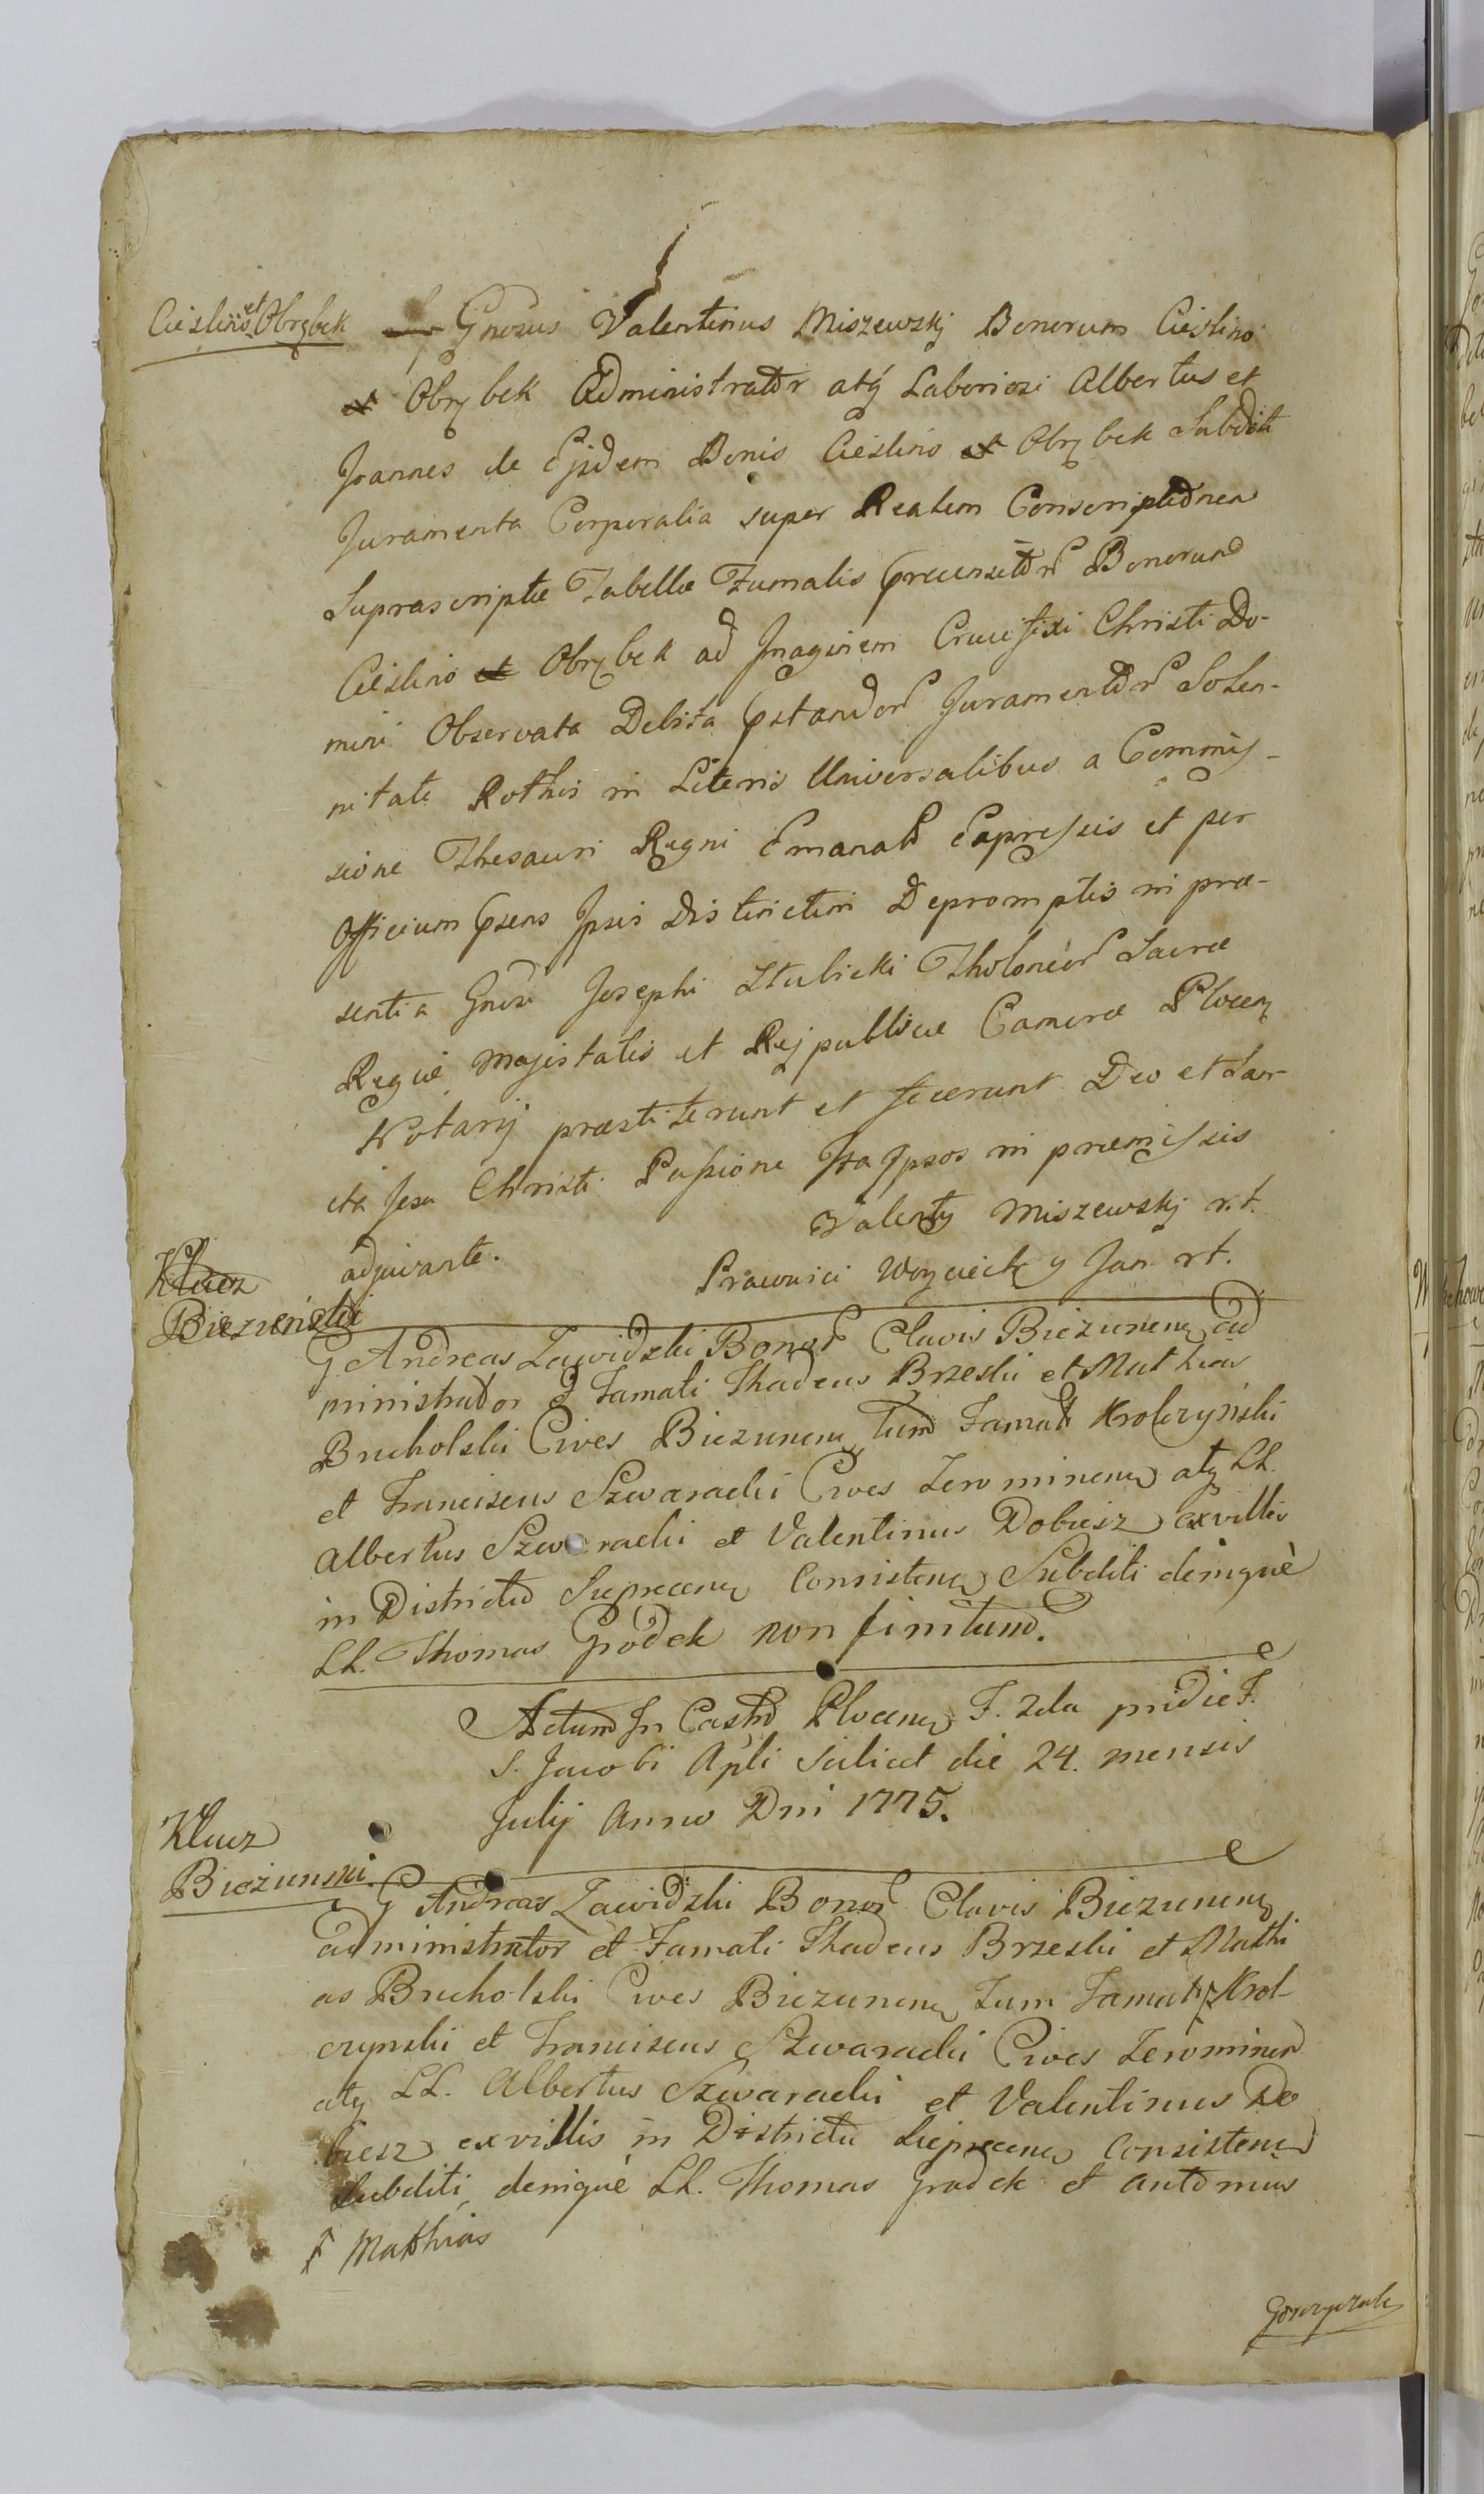 Cieslino et Obrębek
Gnosus Valentinus Miszewskj Bonorum Cieslino
et Obrębek Administrator atq Laboriosi Albertus et
Joannes de Ejsdem Bonis Cieslino et Obrębek Subditi
Juramenta Corporalia super Realem Conscriptionem
Suprascriptæ Tabellæ Fumalis precensitor Bonorum
Cieslino et Obrębek ad Imaginem Crucifixi Christi Do-
mini Observata Debita pstandor Juramentor Solen-
nitate Rothis in Literis Universalibus a Commis-
sione Thesauri Regni Emanat Expressis et per
Officium psens Ipsis Distinctim Depromptis in præ-
sentia Gnosi Josephi Stubicki Theloneor Sacræ
Regiæ Majestatis et Rejpublicæ Cameræ Plocen
Notarij præstiterunt et fecerunt Deo et San-
cta Jesu Christi Passione Ita Ipsos in præmissis
adjuvante.
Valenty Miszewskj r. t.
Prawnici Woyciech y Jan rt.
Klucz
Biezunski
G. Andreas Zawidzki Bonor Clavis Biezunen ad
ministrator et Famati Thadeus Brzeski et Mathias
Bucholski Cives Biezunen tum Famat Krolczynski
et Franciscus Szwaracki Cives Zerominen atq LL.
Albertus Szwaracki et Valentinus Dobiesz ex villis
in Districtu Sieprcens Consisten Subditi denique
LL. Thomas Grodek non finitum.
Actum In Castro Plocen F. 2da pridie F.
S. Jacobi Apli scilicet die 24. mensis
Julij Anno Dni 1775.
Klucz
Biezunski.
G Andreas Zawidzki Bonor Clavis Biezunen
administrator et Famati Thadeus Brzeski et Mathi
as Bucholski Cives Biezunen Tum Famat Ɨ Krol
czynski et Franciscus Szwaracki Cives Zerominen
atq LL. Albertus Szwaracki et Valentinus Do
biesz ex villis in Districtu Sieprcens Consisten
Subditi, denique LL. Thomas Gradek et Antonius
Ɨ Matthias